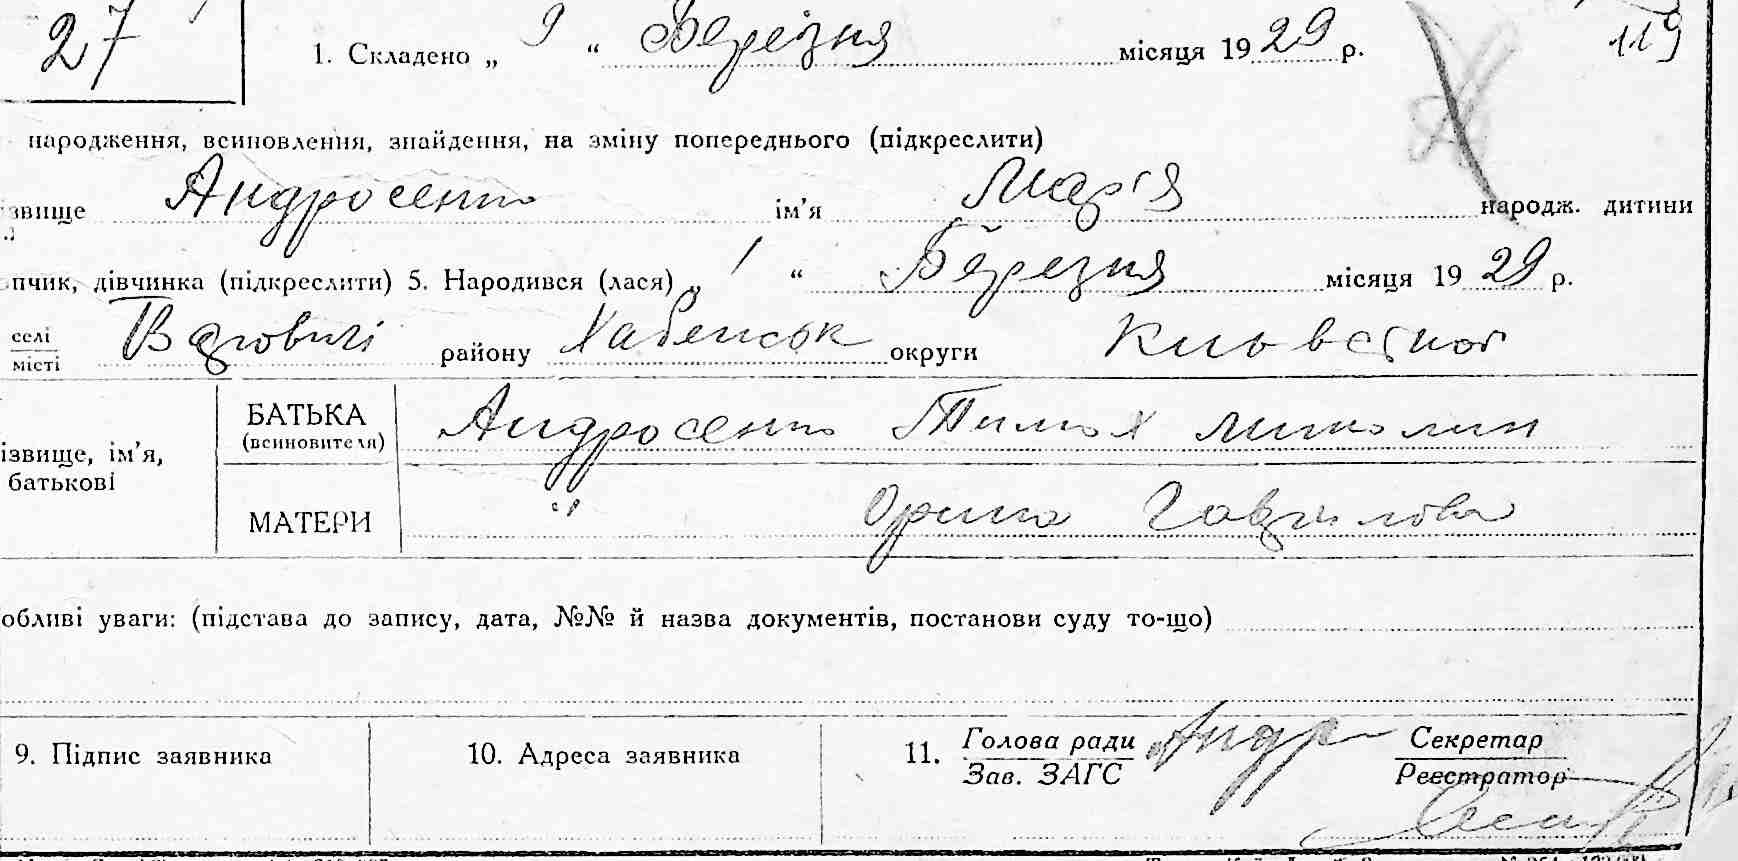 27
1. Складено „ 9 “ Березня місяця 1929 р. 119
народження, всиновлення, знайдення, на зміну попереднього (підкреслити)
звище Андросенко ім’я Марія народж. дитини
пчик, дівчинка (підкреслити) 5. Народився (лася) „ 1 “ Березня місяця 1929 р.
селі
місті району Хабенськ округи
БАТЬКА
(всиновителя) Андросенко Тимох Миколин
ізвище, ім’я,
батькові
МАТЕРИ " Орина Гаврилова
обливі уваги: (підстава до запису, дата, №№ й назва документів, постанови суду то-що)
9. Підпис заявника 10. Адреса заявника 11. Голова ради Андр Секретар
Зав. ЗАГС Реєстратор